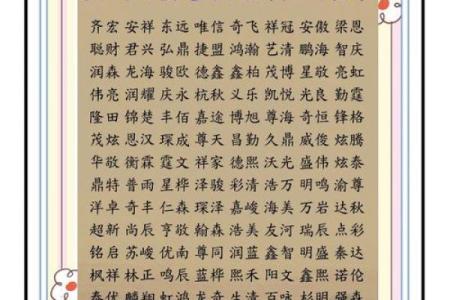 齐宏 安祥 东远 唯信 奇飞 祥冠 安傲 梁恩
聪财 君兴 弘鼎 捷盟 鸿瀚 艺清 鹏海 智庆
润森 龙海 骏欧 德鑫 鑫柏 茂博 星敬 亮虹
伟亮 润耀 庆永 杭秋 义乐 凯悦 光良 勤霆
隆田 锦楚 丰佰 嘉途 博旭 尊海 奇恒 锋格
茂炫 恩汉 琛成 尊天 昌勤 久鼎 威俊 炫腾
华敬 衡霖 霆文 祥家 德熙 沃光 盛伟 炫泰
鼎特 普雨 星桦 泽骏 彩清 浩万 明鸣 渝尊
洋卓 奇丰 仁森 琛泽 嘉峻 海美 万岩 达秋
超新 尚辰 亨敬 瀚森 美浩 友河 明辰 点彩
铭启 苏峻 优南 尊同 润蓝 鑫智 瑞盛 秦达
枫祥 林正 鸣辰 蓝桦 熙清 阳文 明盛 泰诺